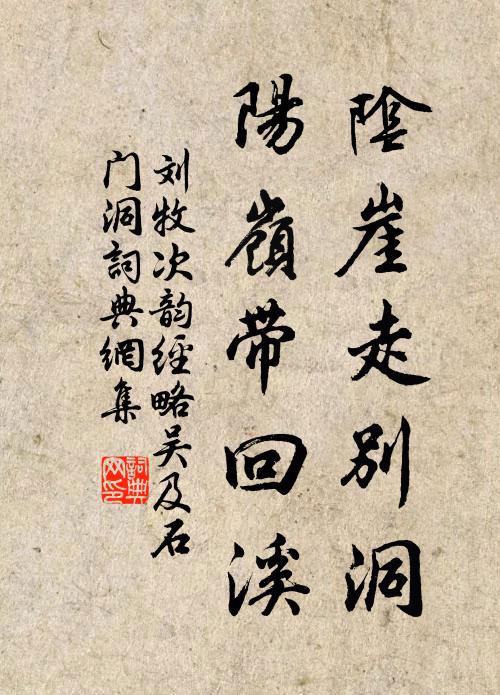 陰崖走別洞
陽嶺帶回溪
刘牧次韵經略吴及石
门洞詞典網集
詞典
网印